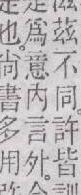 茲不同。許皆
爲意內言外。
是也。尚書多用